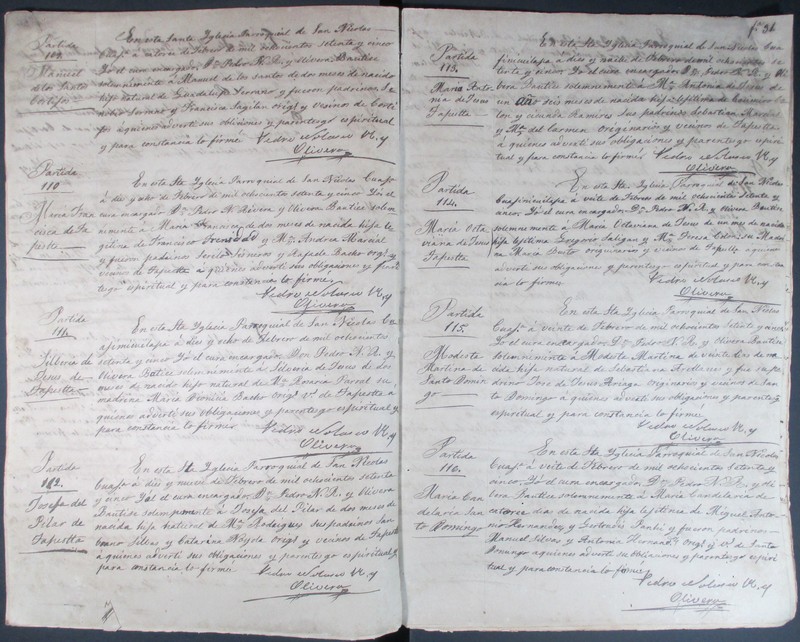 Partida
109.
Manuel
de los Santos
Cortijos
En esta Santa Yglesia Parroquial de San Nicolas
Cuajª á catorce de Febrero de mil ochocientos setenta y cinco
Yo el cura encargado Dn. Pedro N. R. y Olivera Bautice
solemnemente á Manuel de los Santos de dos meses de nacido
hijo natural de Guadalupe Serrano y fueron padrinos
Serrano y Francisca origs y vecinos de Corti-
jos aquienes advertí sus obligaciones y parentesgo espiritual
y para constancia lo firmé. Pedro Nolasco R. y
Olivera
Partida
110
Maria Fran
cisca de Ta
pestla.
En esta Sta. Yglesia Parroquial de San Nicolas Cuajª
á dies y ocho de Febrero de mil ochocientos setenta y cinco Yo el
cura encargado Dn. Pedro N. Rivera y Olivera Bautice solem
nemente á Maria Francisca de dos meses de nacida hija le
gitima de Francisco y Mª Andrea Marcial
y fueron padrinos y Rafaela Bacho origs y ve
cinos de Tapestla á quienes advertí sus obligaciones y paren
tesgo espiritual y para constancia lo firmé.
Pedro Nolasco R. y
Olivera
Partida
111.
Silberia de
Jesus de
Tapestla
En esta Sta. Yglesia Parroquial de San Nicolas Cu
ajiminilapa á dies y ocho de Febrero de mil ochocientos
setenta y cinco Yo el cura encargado Don Pedro N. R. y
Olivera Batice solemnemente á Silveria de Jesus de dos
meses de nacida hija natural de Mª su
madrina Maria Bacho origs vs de Tapestla á
quienes advertí sus obligaciones y parentesgo espiritual y
para constancia lo firmé. Pedro Nolasco R. y
Olivera
Partida
112.
Josefa del
Pilar de
Tapestla
En esta Sta. Yglesia Parroquial de San Nicolas
Cuajª á dies y nueve de Febrero de mil ochocientos setenta
y cinco Yo el cura encargado Dn. Pedro N. R. y Olivera
Bautise solemnemente á Josefa del Pilar de dos meses de
nacida hija natural de Mª Rodrigues sus padrinos
Silva y Catarina origs y vecinos de Tapestla
á quienes advertí sus obligaciones y parentesgo espiritual y
para constancia lo firmé.
Pedro Nolasco R. y
Olivera
Partida
113.
Maria Anto
nia de Jesus
Tapestla
En esta Sta. Yglesia Parroquial de San Nicolas Cua
jiminilapa á dies y nueve de Febrero de mil ochocientos se
tenta y cinco Yo el cura encargado Dn. Pedro N. R. y Oli
vera Bautice solemnemente á Mª Antonia de Jesus de
un año seis meses de nacida hija lejitima de
y Ramires Sus padrinos Sebastian Marcial
y Mª del Carmen originarios y vecinos de Tapestla
á quienes advertí sus obligaciones y parentesgo espiri
tual y para constancia lo firmé. Pedro Nolasco R. y
Olivera
Partida
114.
Maria Octa
viana de Jesus
Tapestla
En esta Sta. Yglesia Parroquial de San Nicolas
Cuajiminilapa á veite de Febrero de mil ochocientos setenta y
cinco Yo el cura encargado Dn. Pedro N. R. y Olivera Bautise
solemnemente á Maria Octaviana de Jesus de un mes de nacida
hija lejitima Gregorio y Mª Teresa su Madri
na Maria originarios y vecinos de Tapestla á quienes
advertí sus obligaciones y parentesgo espiritual y para cons
tancia lo firmé. Pedro Nolasco R. y
Olivera
Partida
115.
Modesta
Martina de
Santo Domin
go
En esta Sta. Yglesia Parroquial de San Nicolas
Cuajª á veinte de Febrero de mil ochocientos setenta y cinco
Yo el cura encargado Dn. Pedro N. R. y Olivera Bautice
solemnemente á Modesta Martina de veinte dias de na
cida hija natural de Sebastiana Arellanes y fue su pa
drino Jose de Jesus originarios y vecinos de San
to Domingo á quienes advertí sus obligaciones y parentesgo
espiritual y para constancia lo firmé
Pedro Nolasco R. y
Olivera
Partida
116.
Maria Can
delaria San
to Domingo
En esta Sta. Yglesia Parroquial de San Nicolas
Cuajª á veite de Febrero de mil ochocientos setenta y
cinco. Yo el cura encargado Dn. Pedro N. R. y Oli
vera Bautice solemnemente á Maria Candelaria de
catorse dias de nacida hija legitima de Miguel Anto
nio Hernandez y Gertrudis y fueron padrinos
Manuel Silvas y Antonia Hernandz origs y vs de Santo
Domingo aquienes advertí sus obligaciones y parentesgo espiri
tual y para constancia lo firmé
Pedro Nolasco R. y
Olivera